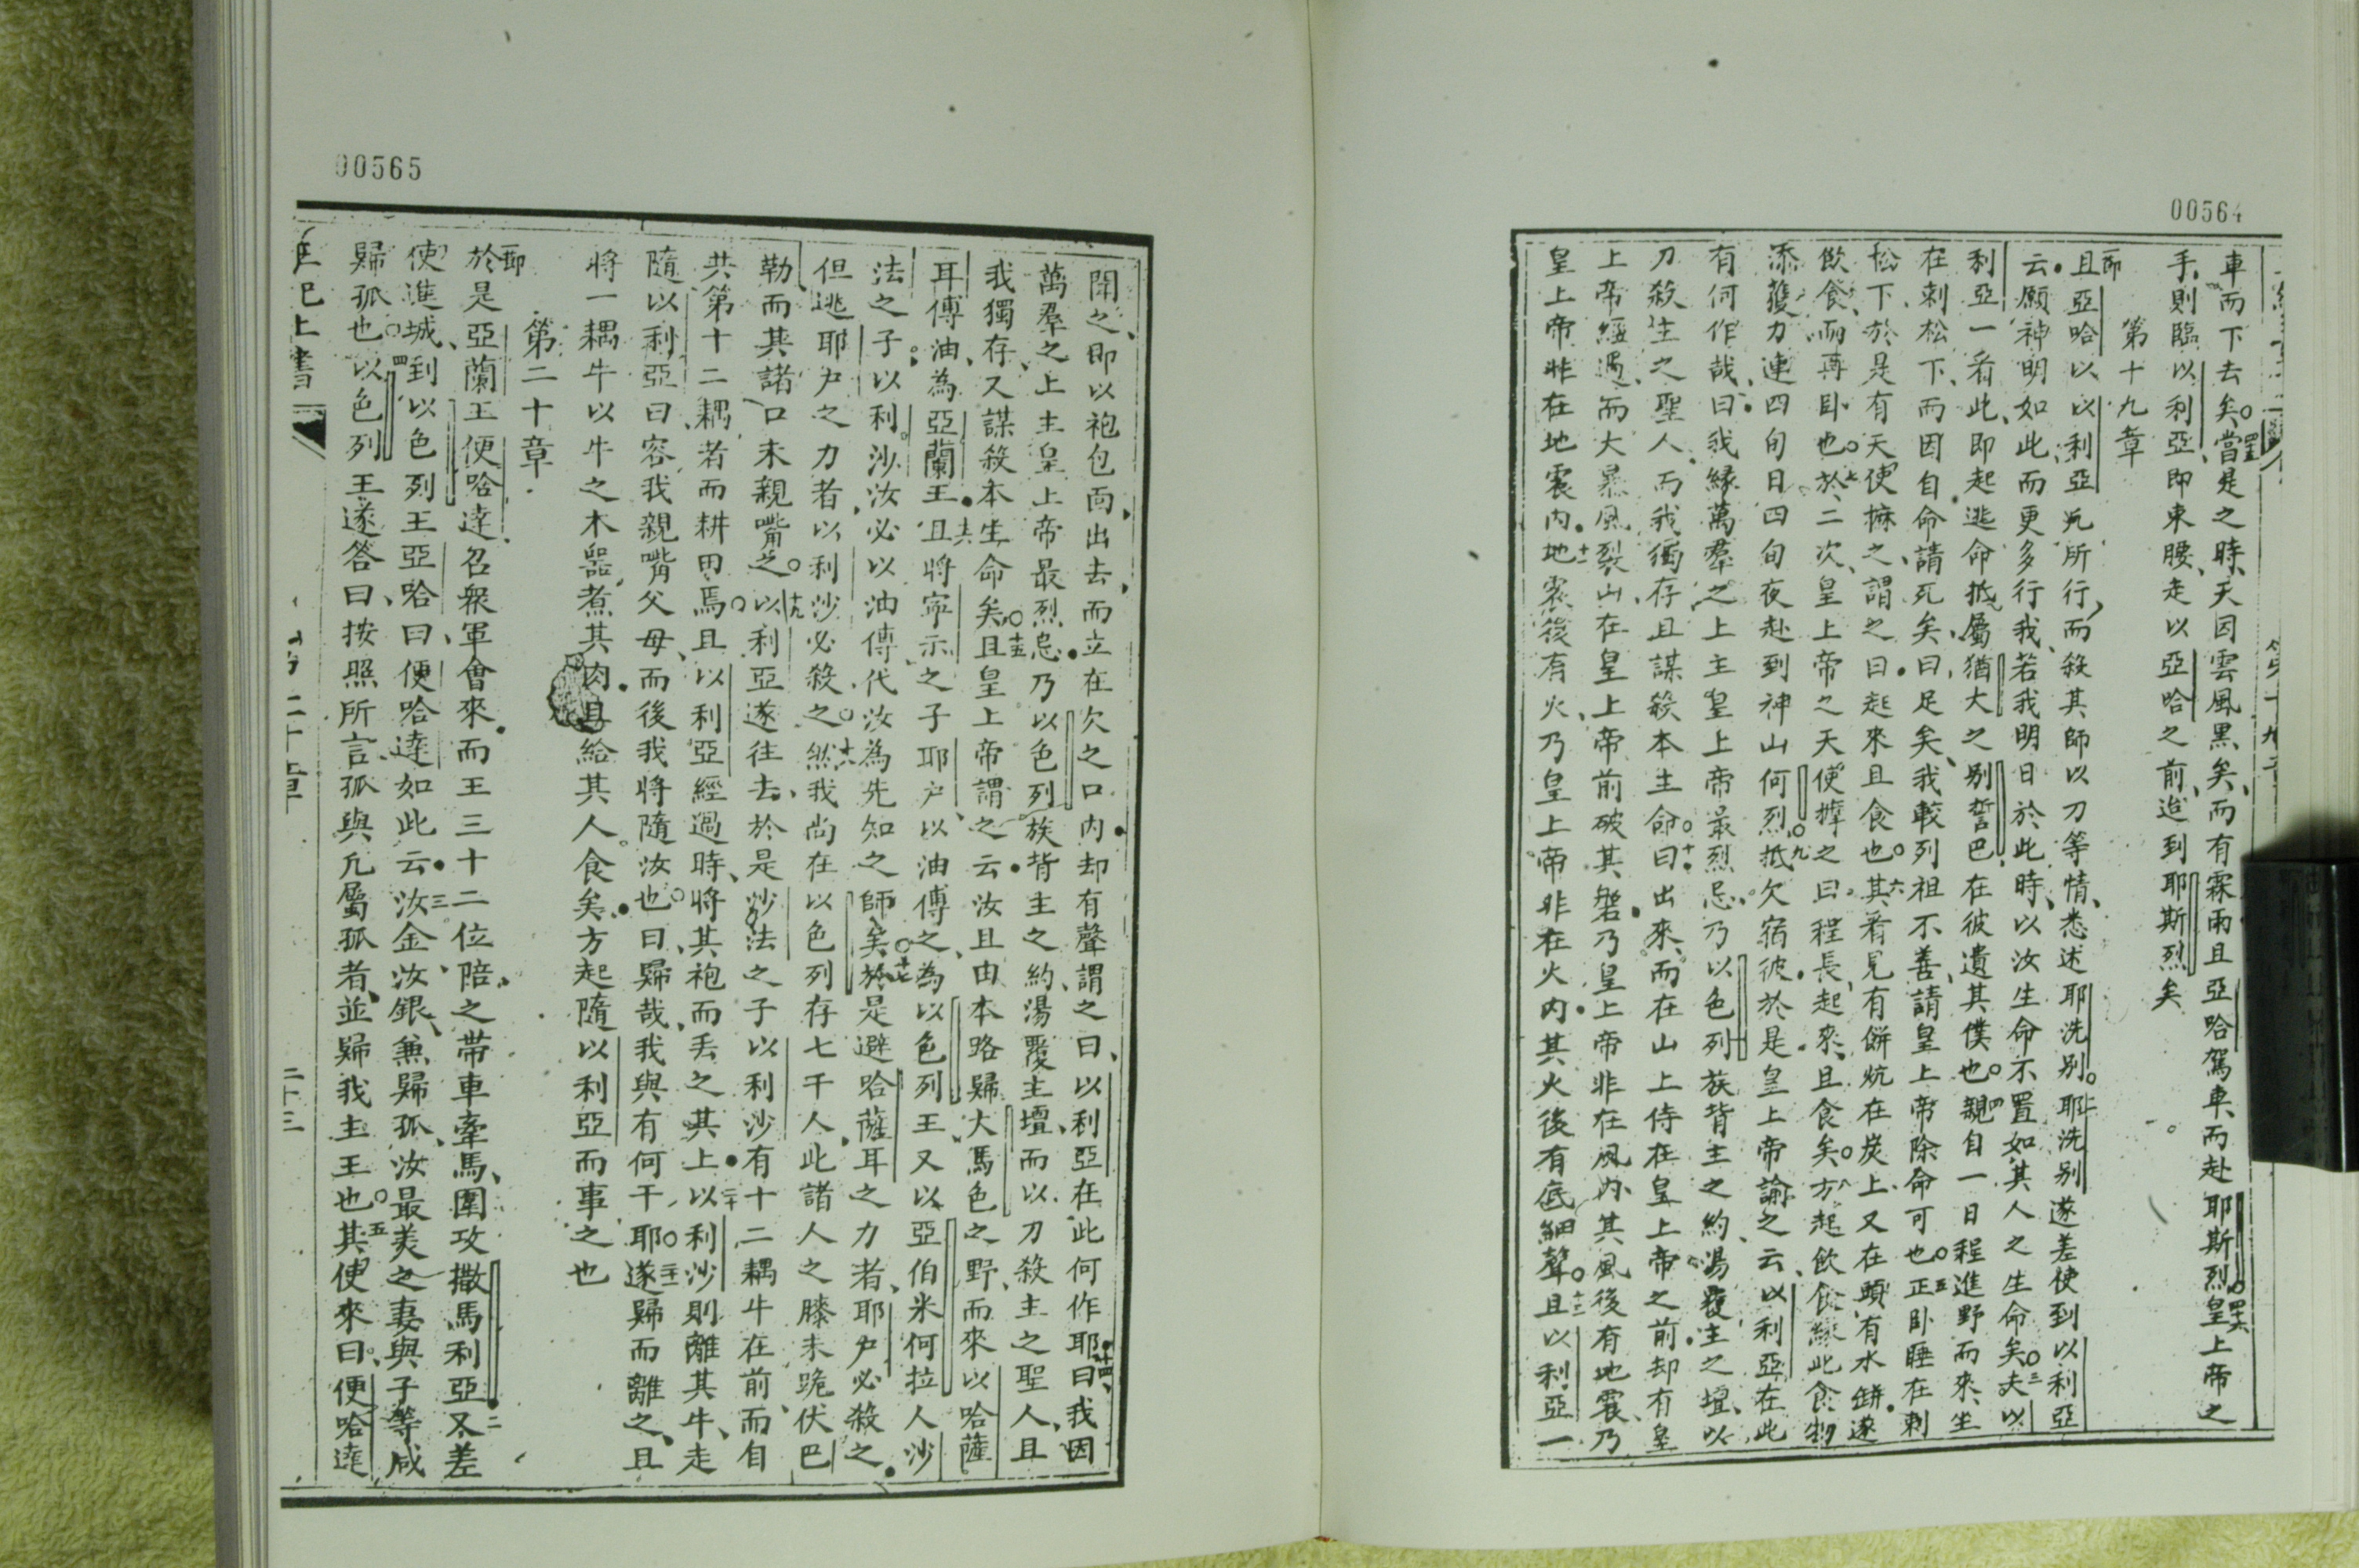 00564
車而下去矣當是之時天因雲風黑矣而有霖雨且亞哈駕車而赴耶斯烈皇上帝之
手則臨以利亞即束腰走以亞哈之前迨到耶斯烈矣
第十九章
節且亞哈以以利亞凢所行而殺其師以刀等情悉述耶洗別二耶洗別遂差使到以利亞
云願神明如此而更多行我若我明日於此時以汝生命不置如其人之生命矣三夫以
利亞一看此即起逃命抵屬猶大之别誓巴在彼遺其僕也四親自一日程進野而來坐
在刺松下而因自命請死矣曰足矣我較列祖不善請皇上帝除命可也五正卧睡在刺
松下於是有天使摭之謂之曰起來且食也六其看見有餅炕在炭上又在頭有水缾遂
飲食而再卧也七於二次皇上帝之天使摩之曰程長起來且食矣八方起飲食緣此食物
添蘐力連四旬日四旬夜赴到神山何烈九抵欠宿彼於是皇上帝諭之云以利亞在此
有何作哉曰我緣萬羣之上主皇上帝最烈忌乃以色列族背主之約湯覆主之壇以
刀殺生之聖人而我獨存且謀殺本生命十一曰出來而在山上侍在皇上帝之前却有皇
上帝經過而大暴風裂山在皇上帝前破其磐乃皇上帝非在風内其風後有地震乃
皇上帝非在地震内十二地震後有火乃皇上帝非在火内其火後有底細聲十三且以利亞一
00565
聞之即以袍包面出去而立在欠之口内却有聲謂之曰以利亞在此何作耶十四曰我因
萬羣之上主皇上帝最烈忌乃以色列族背主之約湯覆主壇而以刀殺主之聖人且
我獨存又謀殺本生命矣十五且皇上帝謂之云汝且由本路歸大馬色之野而來以哈薩
耳傅油為亞蘭王十六且將寜示之子耶户以油傅之為以色列王又以亞伯米何拉人沙
法之子以利沙汝必以油傅代汝為先知之師矣十七於是避哈薩耳之力者耶户必殺之
但逃耶户之力者以利沙必殺之十八然我尚在以色列存七千人此諸人之膝未跪伏巴
勒而其諸口未親嘴之十九以利亞遂往去於是炒法之子以利沙有十二耦牛在前而自
共第十二耦者而耕田焉且以利亞經過時將其袍而丢之其上二十以利沙則離其牛走
隨以利亞曰容我親嘴父母而後我將隨汝也曰歸哉我與有何干耶二十一遂歸而離之且
將一耦牛以牛之木噐煮其肉且給其人食矣方起隨以利亞而事之也
第二十章
節於是亞蘭王便哈達召衆軍會來而王三十二位陪之帶車牽馬圍攻撒馬利亞二又差
使進城到以色列王亞哈曰便哈達如此云三汝金汝銀兼歸孤汝最美之妻與子等咸
歸孤也四以色列王遂答曰按照所言孤與凢屬孤者並歸我主王也五其使來曰便哈達
王記上書 第二十章 二十三